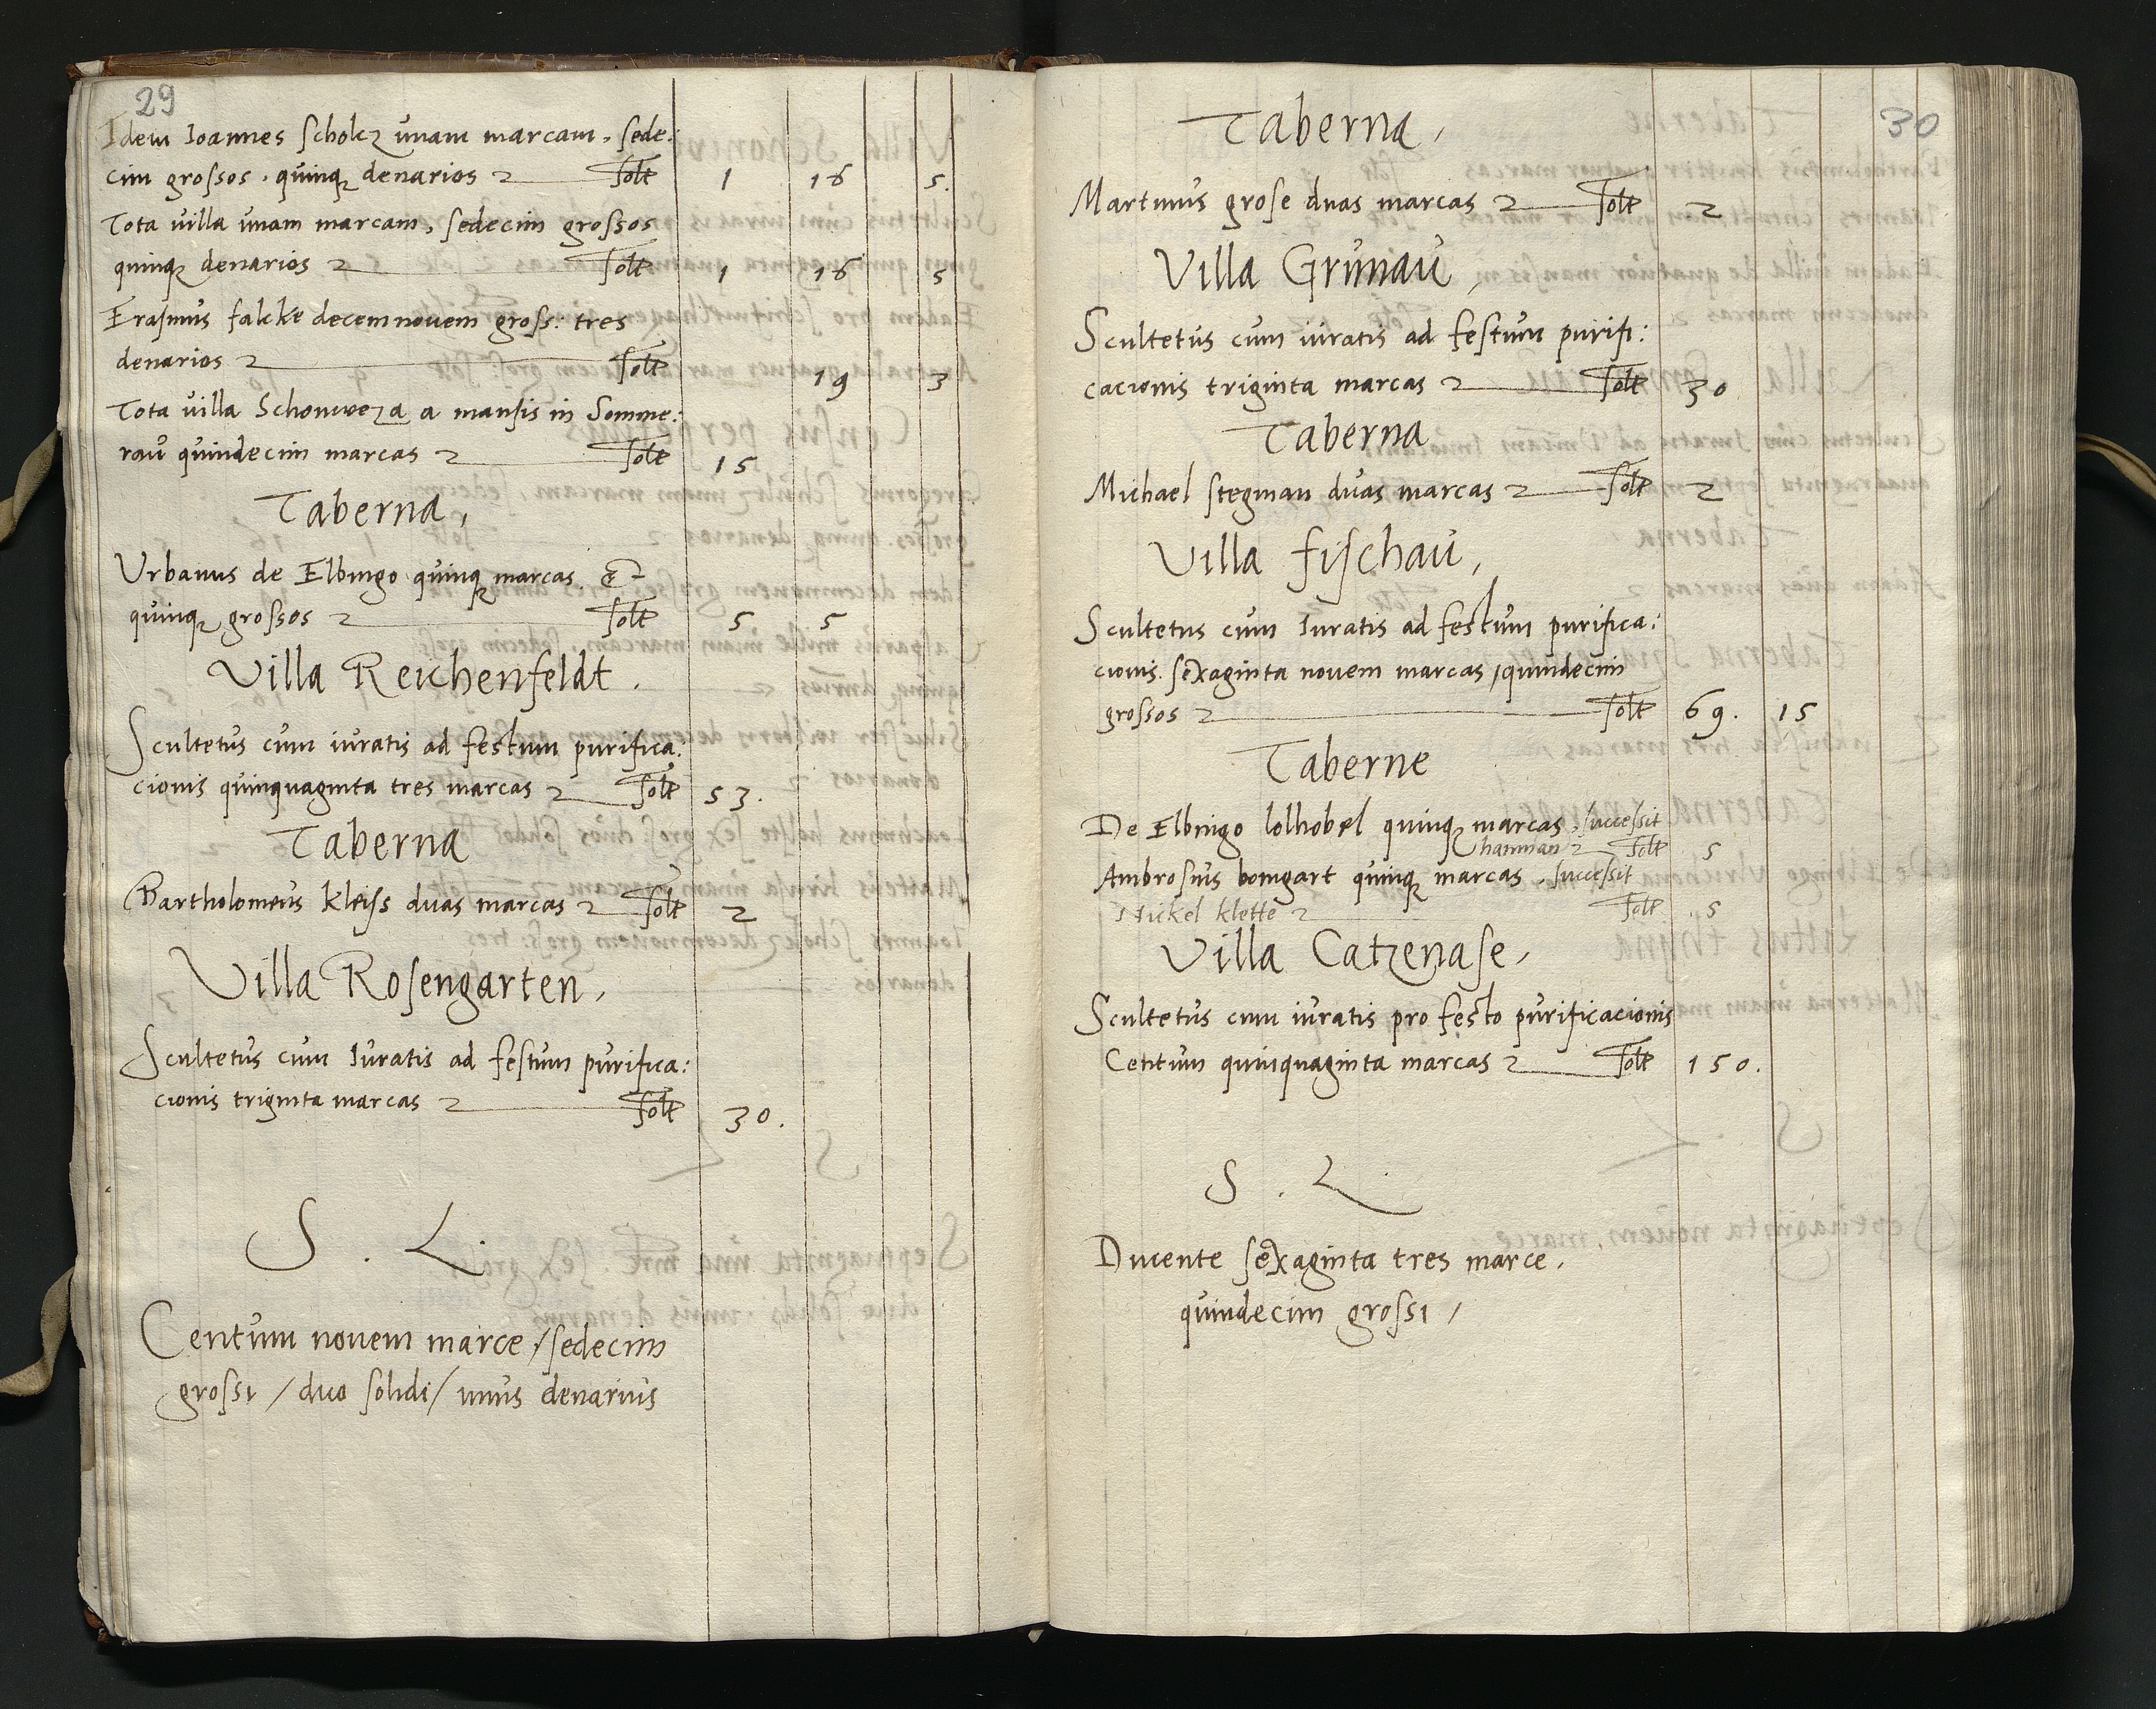 29
Idem Ioannes Scholcz unam marcam, sede:
cim grossos. quinqꝫ denarios solt 1 16 5.
Tota villa unam marcam, sedecim grossos
quinqꝫ denarios solt 1 16 5
Erasmus falcke decemnovem gross: tres
denarios solt 19 3
Tota villa Schonweza a mansis in Somme:
rau quindecim marcas solt 15
Taberna,
Urbanus de Elbingo quinqꝫ marcas. et
quinqꝫ grossos solt 5 5
Villa Reichenfeldt.
Scultetus cum iuratis ad festum purifica:
cionis quinquaginta tres marcas solt 53.
Taberna
Bartholomeus kleiss duas marcas solt 2
Villa Rosengarten,
Scultetus cum Iuratis ad festum purifica:
cionis triginta marcas solt 30.
S. L.
Centum novem marce / sedecim
grossi / duo solidi / unus denarius
30
Taberna,
Martinus grose duas marcas solt 2
Villa Grunau,
Scultetus cum iuratis ad festum purifi:
cacionis triginta marcas solt 30
Taberna
Michael stegman duas marcas solt 2
Villa fischau,
Scultetus cum Iuratis ad festum purifica:
cionis. sexaginta novem marcas / quindecim
grossos solt 69. 15
Taberne
De Elbingo lolhobel quinqꝫ marcas, successit
hannan solt 5
Ambrosius bomgart quinqꝫ marcas, successit
Nickel klette solt 5
Villa Catzenase,
Scultetus cum iuratis pro festo purificacionis
Centum quinquaginta marcas solt 150.
S. L
Ducente sexaginta tres marce,
quindecim grossi /